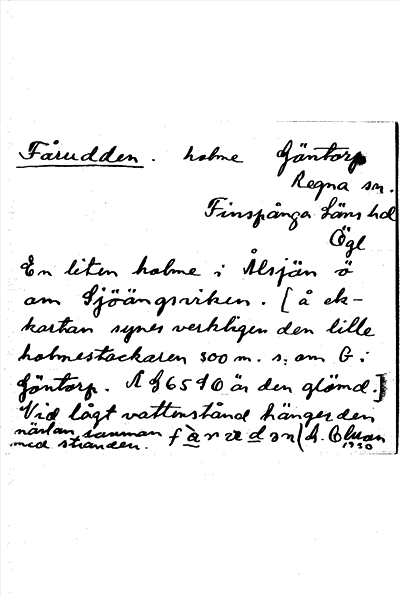 Fårudden. holme Göntorp
Regna sn.
Finspånga Läns hd
Ögl
En liten holme i Ålsjön ö
om Sjöängsviken. [å ek-
kartan synes verkligen den lille
holmestackaren 500 m. s. om G i
Göntorp. Å är den glömd.]
Vid lågt vattenstånd hänger den
nästan samman
med stranden. (A. Olsson
1930